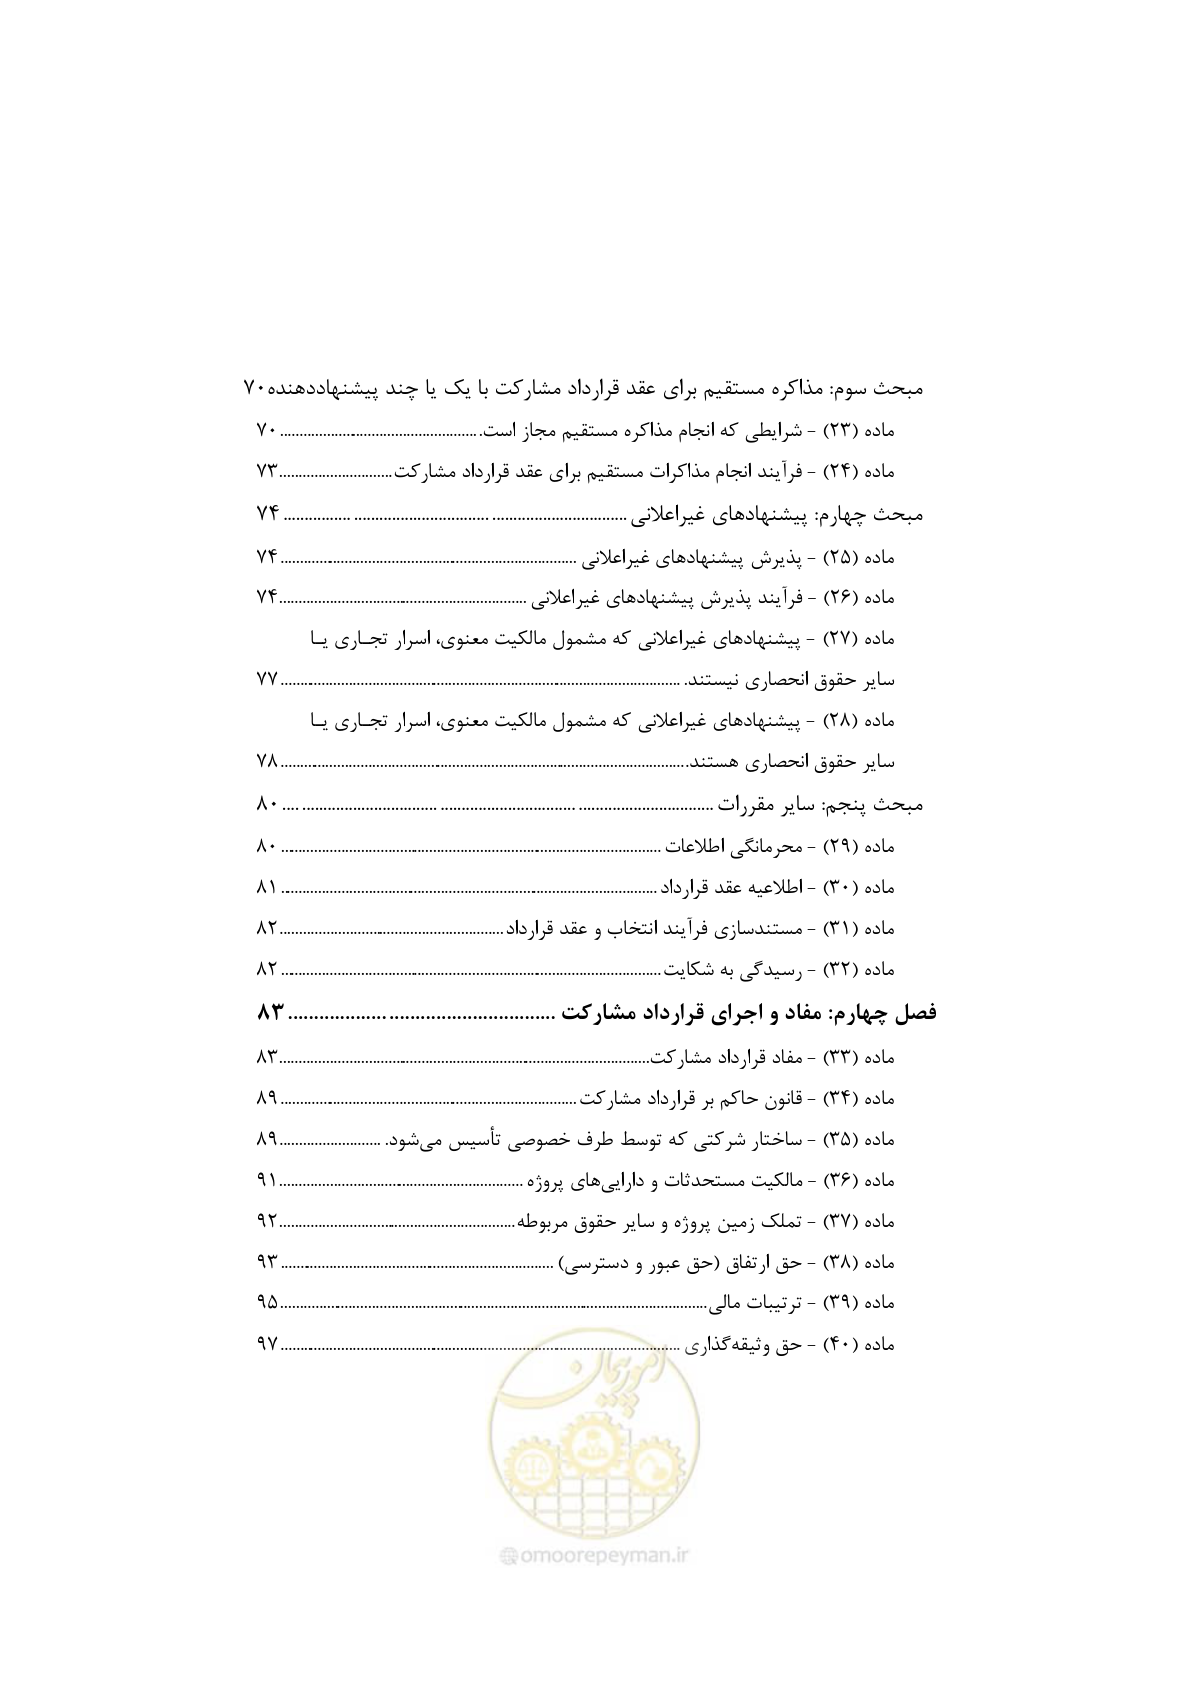 مبحث سوم: مذاکره مستقیم برای عقد قرارداد مشارکت با یک یا چند پیشنهاددهنده ۷۰
ماده (۲۳) - شرایطی که انجام مذاکره مستقیم مجاز است. ........ ۷۰
ماده (۲۴) - فرآیند انجام مذاکرات مستقیم برای عقد قرارداد مشارکت ........ ۷۳
مبحث چهارم: پیشنهادهای غیراعلانی ........ ۷۴
ماده (۲۵) - پذیرش پیشنهادهای غیراعلانی ........ ۷۴
ماده (۲۶) - فرآیند پذیرش پیشنهادهای غیراعلانی ........ ۷۴
ماده (۲۷) - پیشنهادهای غیراعلانی که مشمول مالکیت معنوی، اسرار تجـاری یـا
سایر حقوق انحصاری نیستند. ........ ۷۷
ماده (۲۸) - پیشنهادهای غیراعلانی که مشمول مالکیت معنوی، اسرار تجـاری یـا
سایر حقوق انحصاری هستند. ........ ۷۸
مبحث پنجم: سایر مقررات ........ ۸۰
ماده (۲۹) - محرمانگی اطلاعات ........ ۸۰
ماده (۳۰) - اطلاعیه عقد قرارداد ........ ۸۱
ماده (۳۱) - مستندسازی فرآیند انتخاب و عقد قرارداد ........ ۸۲
ماده (۳۲) - رسیدگی به شکایت ........ ۸۲
فصل چهارم: مفاد و اجرای قرارداد مشارکت ........ ۸۳
ماده (۳۳) - مفاد قرارداد مشارکت ........ ۸۳
ماده (۳۴) - قانون حاکم بر قرارداد مشارکت ........ ۸۹
ماده (۳۵) - ساختار شرکتی که توسط طرف خصوصی تأسیس می‌شود. ........ ۸۹
ماده (۳۶) - مالکیت مستحدثات و دارایی‌های پروژه ........ ۹۱
ماده (۳۷) - تملک زمین پروژه و سایر حقوق مربوطه ........ ۹۲
ماده (۳۸) - حق ارتفاق (حق عبور و دسترسی) ........ ۹۳
ماده (۳۹) - ترتیبات مالی ........ ۹۵
ماده (۴۰) - حق وثیقه‌گذاری ........ ۹۷
امور پیمان
@omoorepeyman.ir